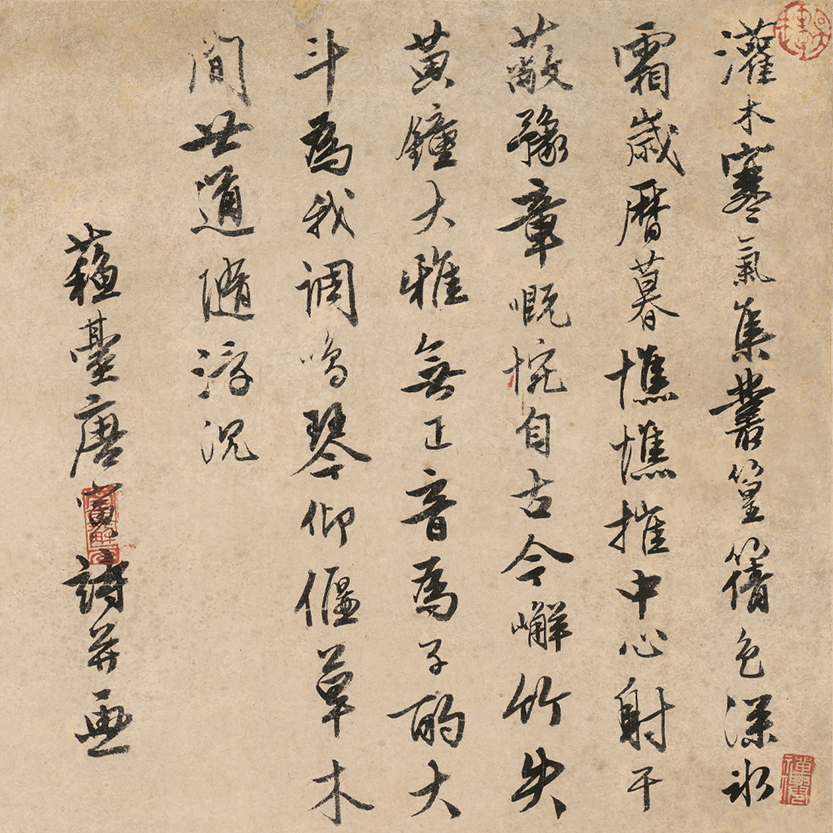 灌木寒氣集叢篁籜色深冰
霜歲曆暮憔憔摧中心射干
蔽豫章慨惋自古今嶰竹失
黃鐘大雅無正音為子酌大
斗為我調鳴琴仰偃草木
間世道隨浮沉
蘇臺唐寅詩并画